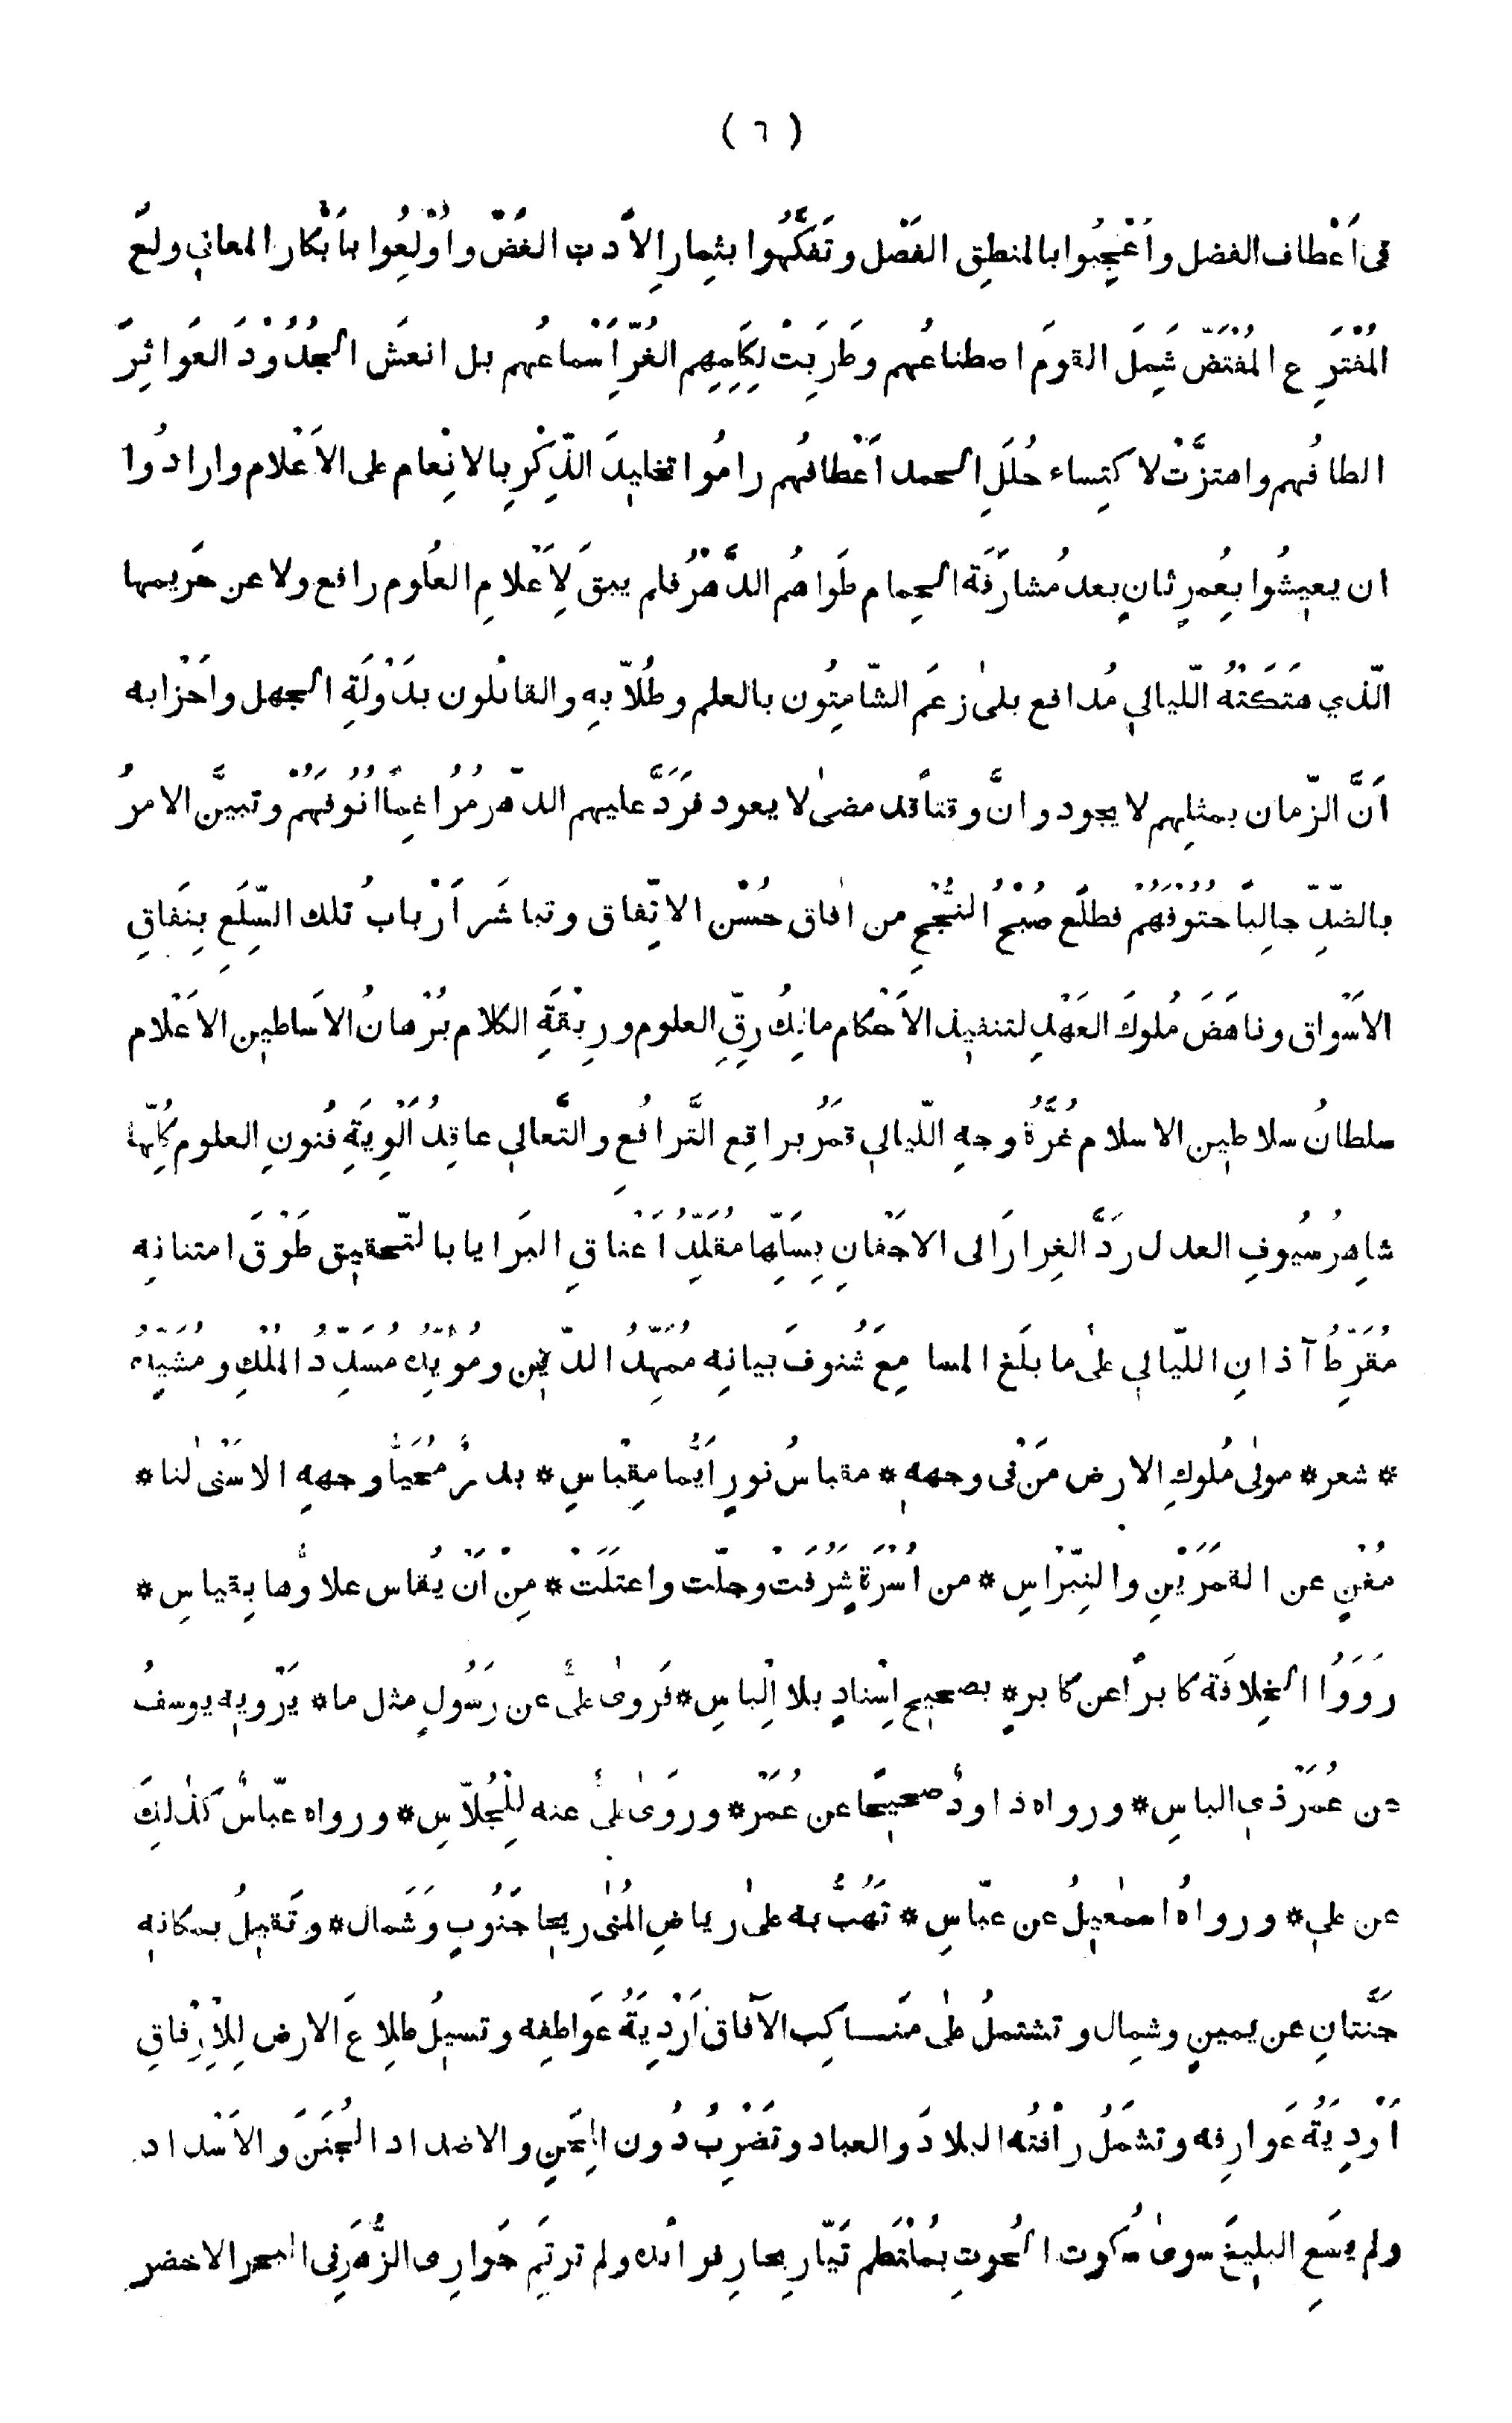 ( ٦ )
فى اَعْطاف الفضل واُعْجِبُوا بالمنطِق الفَصْل وتَفَكَّهُوا بثِمارِ الاَدبِ الغَضّ واُوْلِعُوا بأَبْكار المعاني ولعَ
المُفْتَرِعِ المُفْتَضّ شَمِلَ القومَ اصطناعُهم وطَرِبَتْ لِكَلِمِهِم الغُرِّ أَسْماعُهم بل انعَش الجُدُوْدَ العَواثِرَ
الطافُهم واهتزَّتْ لاكتِساء حُلَلِ الحمد اَعْطافُهم رامُوا تخليدَ الذِّكْرِ بالانْعام على الاَعْلام وارادُوا
ان يعيشُوا بعُمرٍ ثانٍ بعد مُشارَفَة الحِمام طَواهُم الدَّهْرُ فلم يبقَ لاَعْلامِ العلُوم رافع ولا عن حَريمها
الّذي هَتَكَتْهُ اللّيالي مُدافع بلىٰ زعَم الشّامِتُون بالعلم وطُلّابِهِ والقائلُون بدَوْلَةِ الجهل واَحْزابه
اَنَّ الزّمان بمثلِهم لا يجود وانَّ وقتاً قد مضىٰ لا يعود فرَدَّ عليهم الدّهر مُراغِماً اُنُوفَهُمْ وتبيَّن الامرُ
بالضدِّ جالِباً حُتوفَهُمْ فطلَع صُبْحُ النُّجْحِ من اٰفاق حُسْن الاتّفاق وتباشَر اَرْبابُ تلك السِّلَعِ بِنَفاقِ
الاَسْواق وناهَضَ مُلوكَ العَهْدِ لتنفيذ الاَحْكام مالِكُ رِقِّ العلوم ورِبْقَةِ الكلام بُرْهانُ الاَساطين الاَعْلام
سلطانُ سلاطين الاسلام غُرَّةُ وجهِ اللّيالي قمَرُ براقِعِ التَّرافُعِ والتَّعالي عاقِدُ اَلْوِيَةِ فُنونِ العلوم كُلِّها
شاهِرُ سُيوفِ العدل رَدَّ الغِرارَ الى الاجْفانِ بِسَلِّها مُقَلِّدُ اَعْناقِ البَرايا بالتّحقيق طَوْقَ امتنانِه
مُقَرِّطُ آذانِ اللّيالي علىٰ ما بلَغ المسامِعَ شُنوفَ بيانِه مُمَهِّدُ الدّينِ ومُوَيِّدُه مُسَدِّدُ المُلْكِ ومُشَيِّدُه
* شعر * مولٰى مُلوكِ الارض مَنْ فى وجهِهِ * مقباسُ نورٍ اَيُّما مِقْباسِ * بدرٌ مُحَيّا وجههِ الاَسْنىٰ لنا *
مُغْنٍ عن القمَرَيْنِ والنِّبْراسِ * من اُسْرَةٍ شَرُفَتْ وجلّت واعتَلَتْ * مِنْ اَنْ يُقاس علاؤُها بِقياسِ *
رَوَوُا الخِلافَة كابراً عن كابرٍ * بصحيحِ اِسْنادٍ بلا اِلْباسِ * فَروىٰ عليٌّ عن رَسُولٍ مثل ما * يَرْويه يوسفُ
عن عُمَرَ ذي الباسِ * ورواه داودٌ صحيحاً عن عُمَرْ * وروَىٰ عليٌّ عنه للجُلّاسِ * ورواه عبّاسٌ كذٰلِكَ
عن علي * ورواهُ اسمٰعيلُ عن عبّاسِ * تهُبُّ به علىٰ رياضِ المُنٰى ريحا جَنُوبٍ وشَمال * وتَقيلُ بمكانِه
جَنَّتانِ عن يمينٍ وشِمال وتشتملُ علٰى مَناكبِ الآفاق اَرْدِيَةُ عَواطِفِه وتسيلُ طِلاعَ الارضِ لِلاِرْفاقِ
اَوْدِيَةُ عَوارِفه وتشمَلُ رأفتُه البلادَ والعباد وتَضْرِبُ دُون المِحَنِ والاضداد الجُنَنَ والاَسْداد
ولم يَسَعِ البليغَ سوىٰ سُكوت الحُوتِ بمُلْتَطِم تَيّارِ بحارِ فوائده ولم ترتَمِ جَوارى الزُّهْرِ فى البحر الاخضر